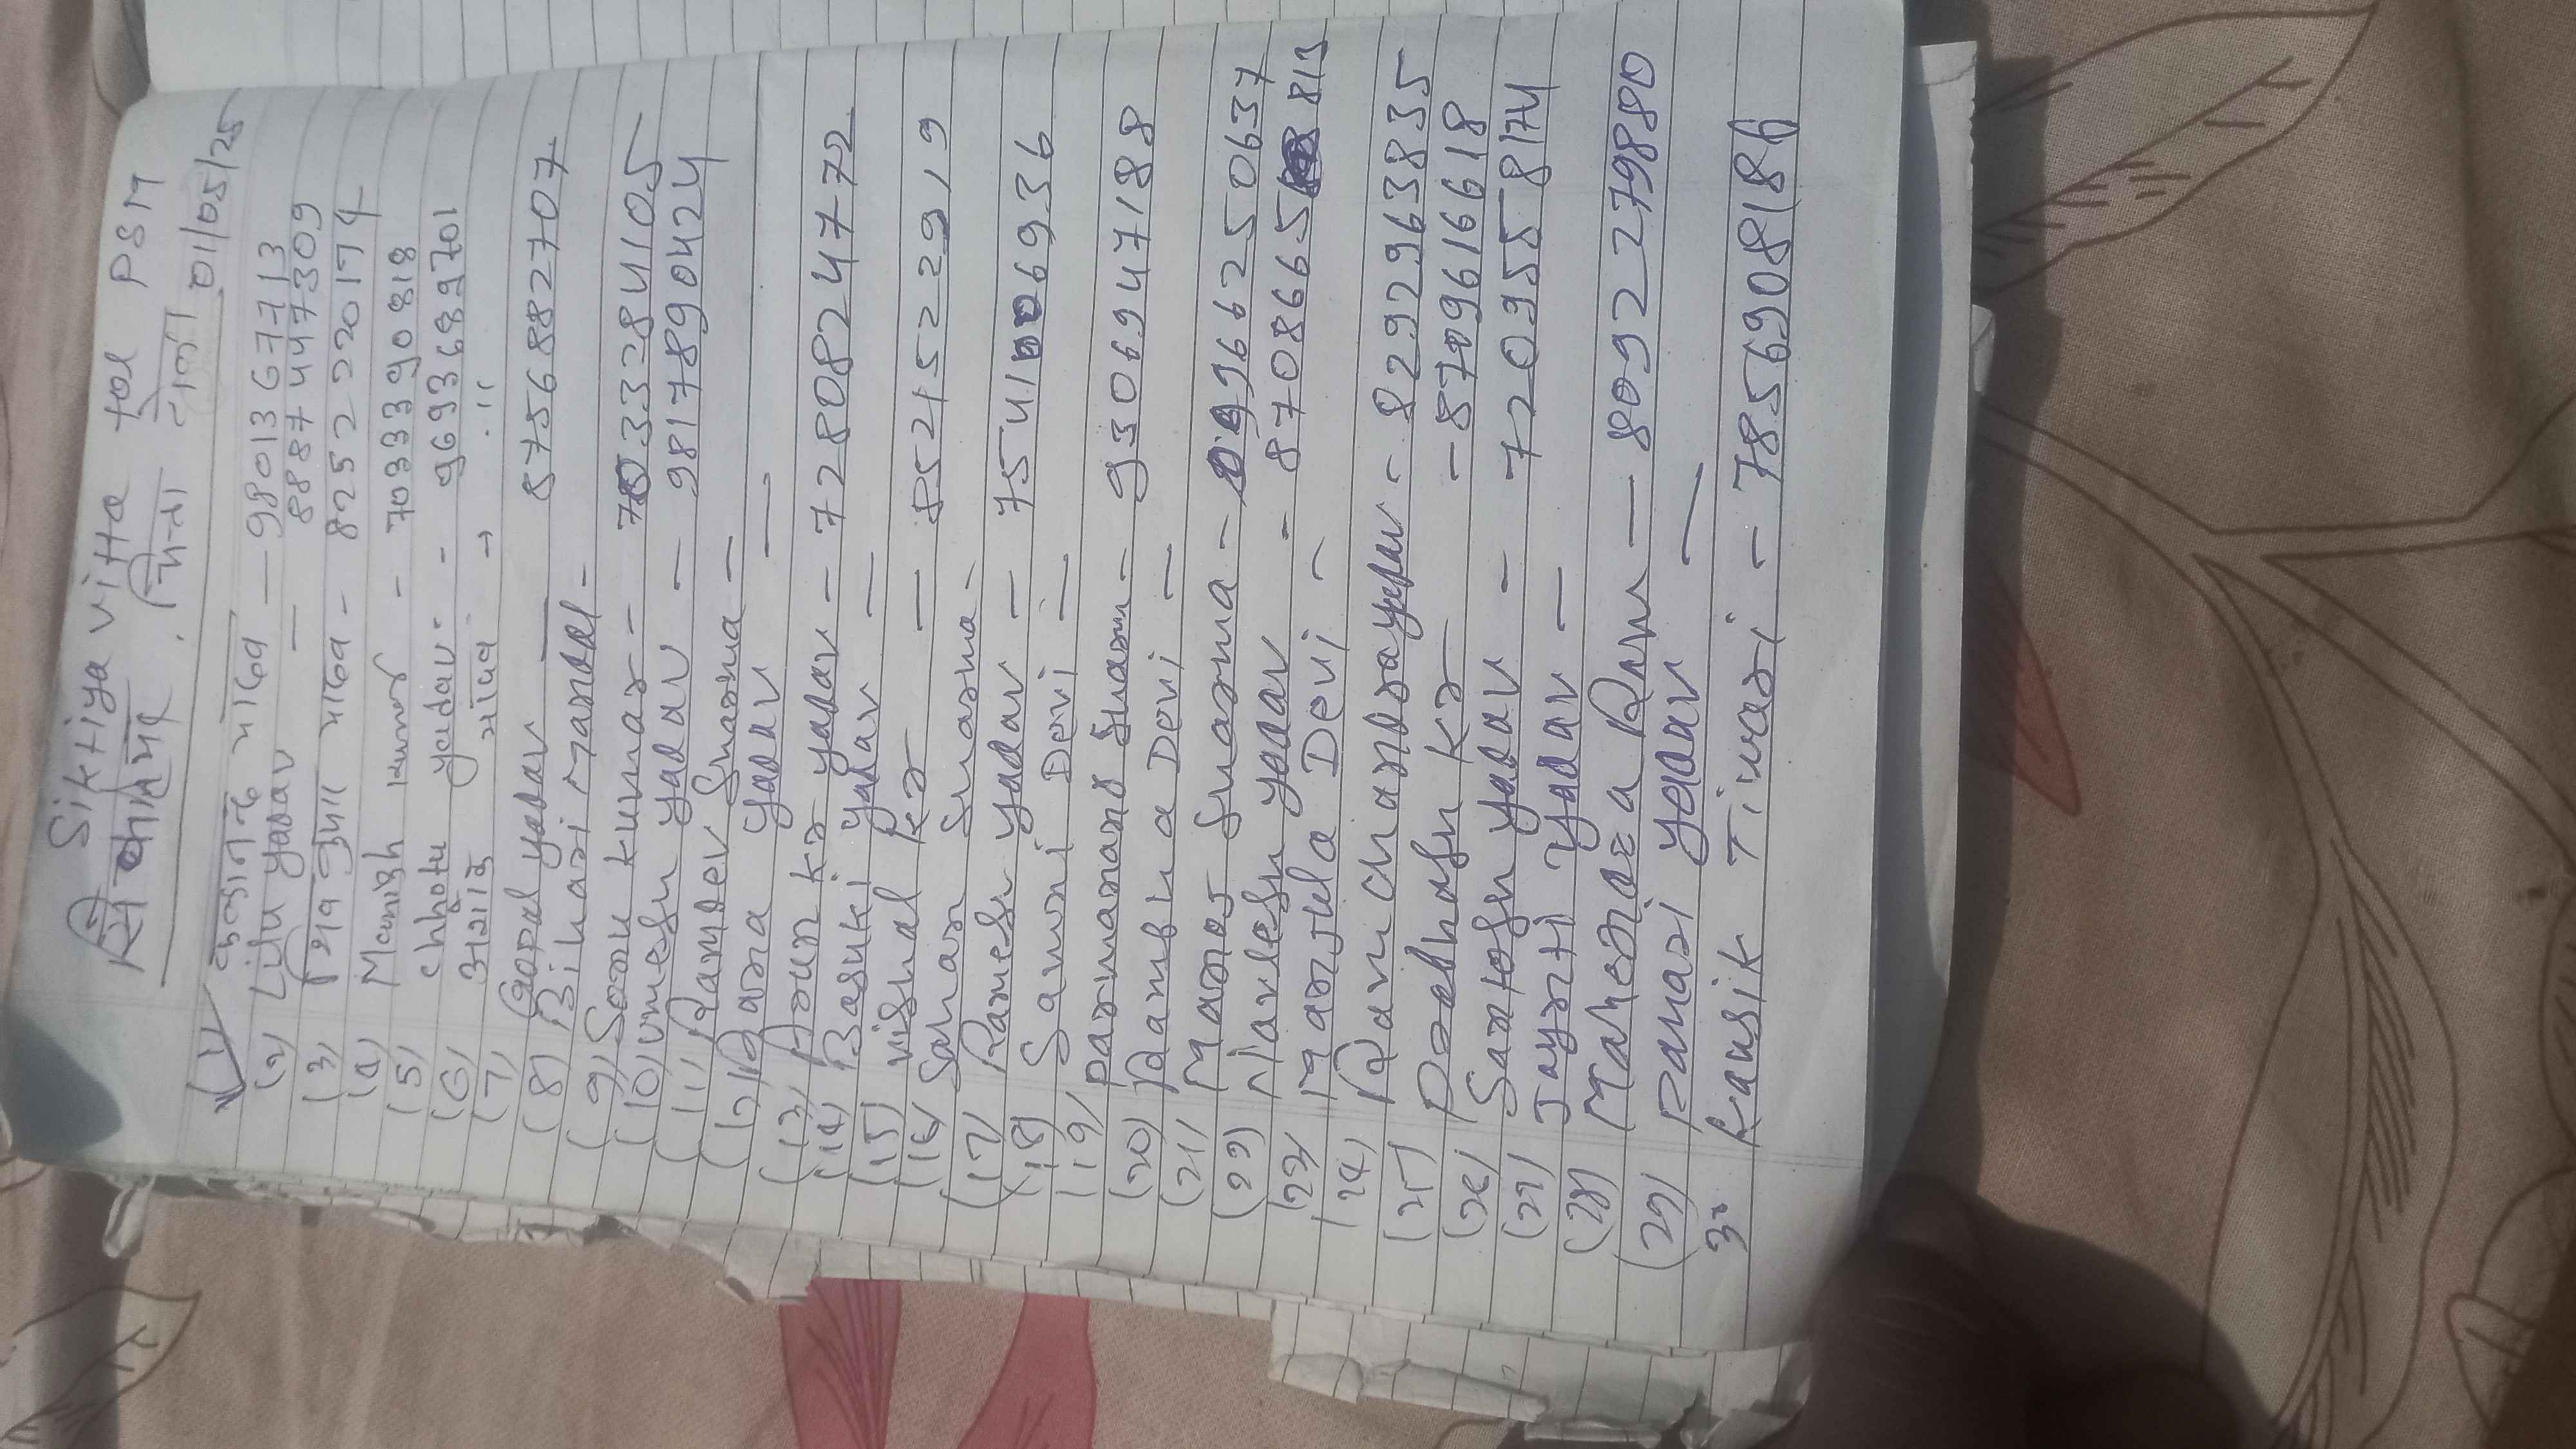 Siktiya vitta tol PSM
चिन्ता टोला 01/05/25
(1) ब्रह्मानन्द यादव — 9801367713
(2) Lipu yadav — 8887447309
(3) शिव कुमार यादव - 8252220174
(4) Manish kumar - 7033390818
(5) chhotu yadav - 9693689701
(6)
(7) Gopal yadav — 8756882707
(8) Bihari Mandal -
(9) Sonu kumar - 70333284105
(10) Umesh yadav — 9817890424
(11) Ramdev Sharma —
(12) yadav —
(13) Arun kr yadav - 7280824772
(14) Basuki yadav —
(15) vishal kr — 8521522919
(16) Sharma -
(17) Ramesh yadav — 7541006936
(18) Devi —
(19) parmanand Sharm - 9306947188
(20) Devi —
(21) Manoj Sharma - 9966250637
(22) Navlesh yadav - 8708665813
(23) Manjula Devi -
(24) Ramchandrayadav - 8292963835
(25) kr - 8709616618
(26) Santosh yadav - 7209558174
(27) Jaynti yadav —
(28) Mahendra Ram — 8092279880
(29) yadav —
30 Kausik Tiwari - 7856908186